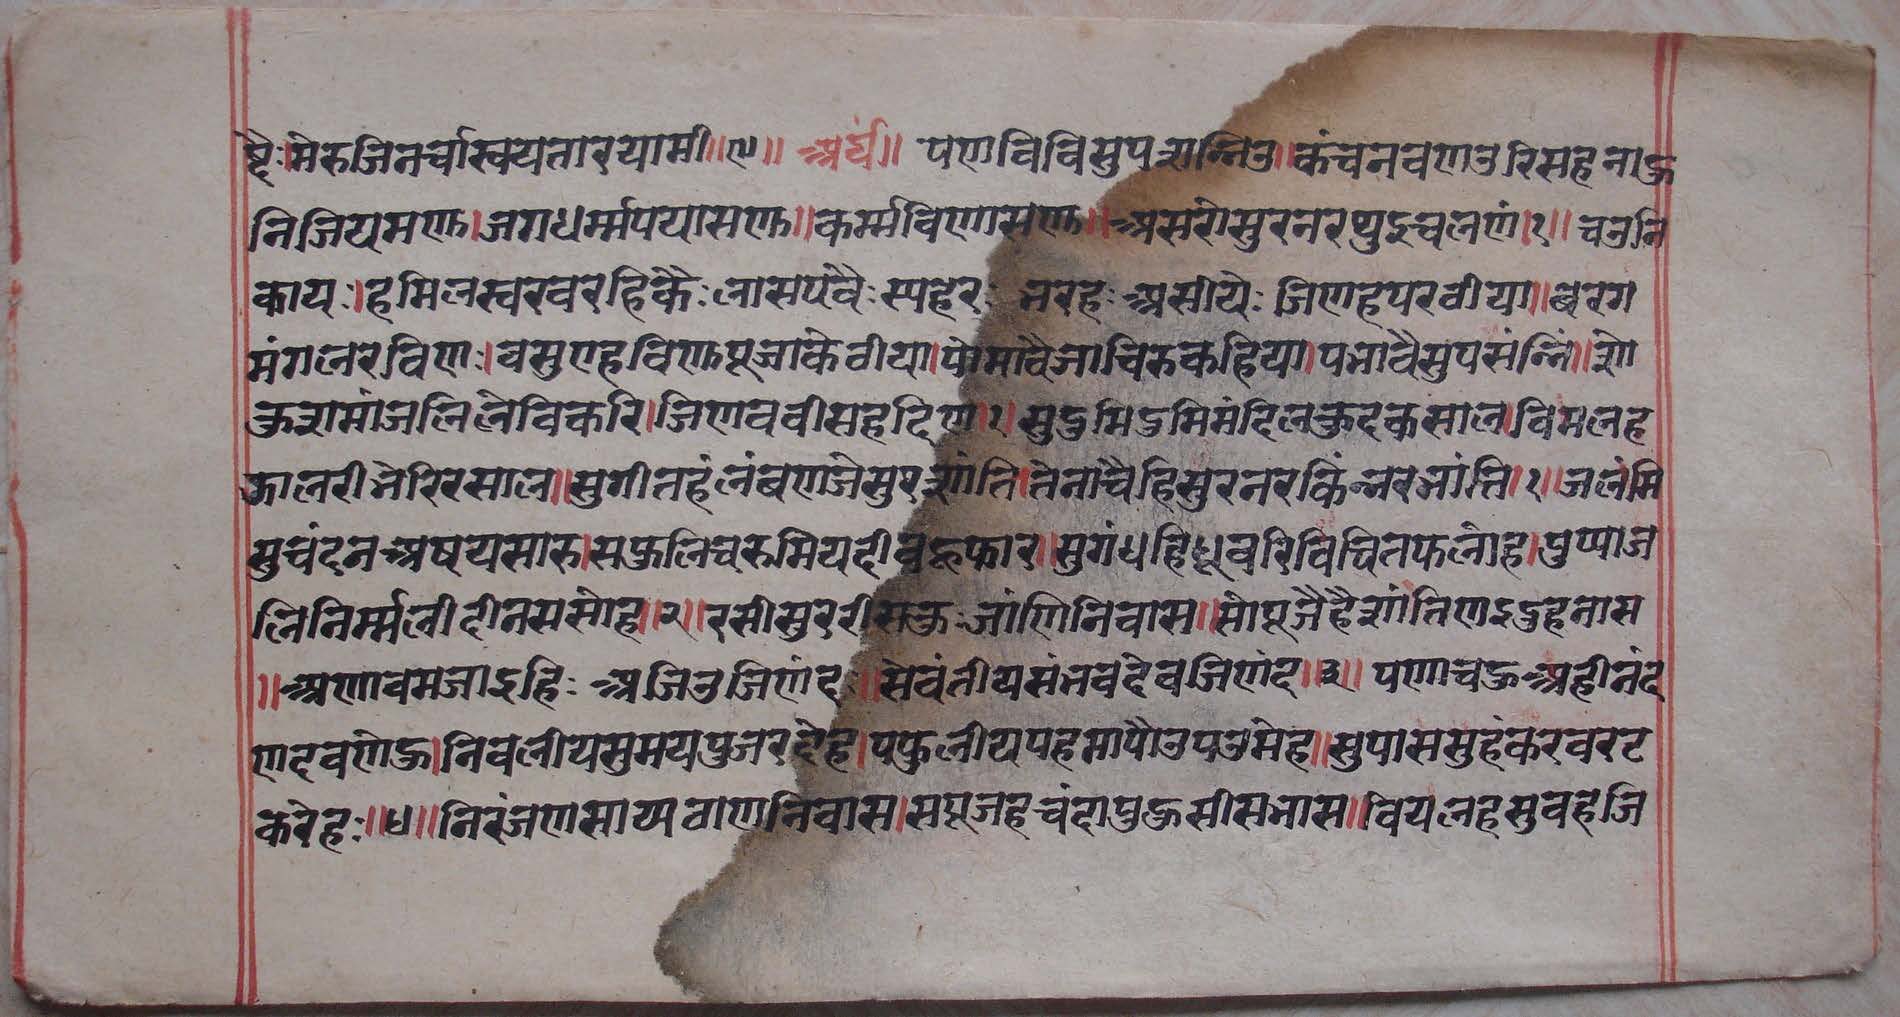 ष्टैः।मेरुजिनर्चास्वयतारयामी॥९॥ अर्घं॥ पणविविसुपरान्निउ॥कंचनवणउरिसहनाऊ
निजियमण।जगधर्म्मपयासण॥कर्म्मविणासण॥असरोसुरनरथुइचलणं।१॥ चउनि
कायः।हमिलस्वरवरहिकैःलासपवैःस्पहेरःभरहःअसीयेःजिणहपरवीया॥बरग
मंगलरेविणः।वसुएहविणपूजाकेवीया।पोमावैजाचिरुकहिया।पभावैसुपसंन्निं॥
जिणववीसहदिण।१।सुडुमिडमिमंदिल विमलह
झालरीभेरिरसाल॥सुगीतहंलंबणजेसुर तेनाचैहिसुरनरकिंन्नरजांत्ति।१॥जलंमि
सुचंदनअषयसारु।सफुलिचरुमियदीवहफार॥सुगंधहिधूवरिविचितफलोह।पुप्पाज
लिनिर्म्मलीदीनससोह।२॥रसीसुररीसऊःजांणिनिवास॥सोपूजैहै णइदुहनास
॥अणावमजाइहिःअजिउजिणंदः॥सेवंतीयसंभवदेवजिणंद॥३॥ पणचऊअहीनंद
णदवणेऊ।निवलीयसुमयपुजरदेह।पफुलीयपहमापौउपउमेह॥सुपाससुहंकरवरट
करेहः॥४॥निरंजणसाय्यवाणनिवास।सपूजहचंदापुऊसीसभास॥वियलहसुवहेजि